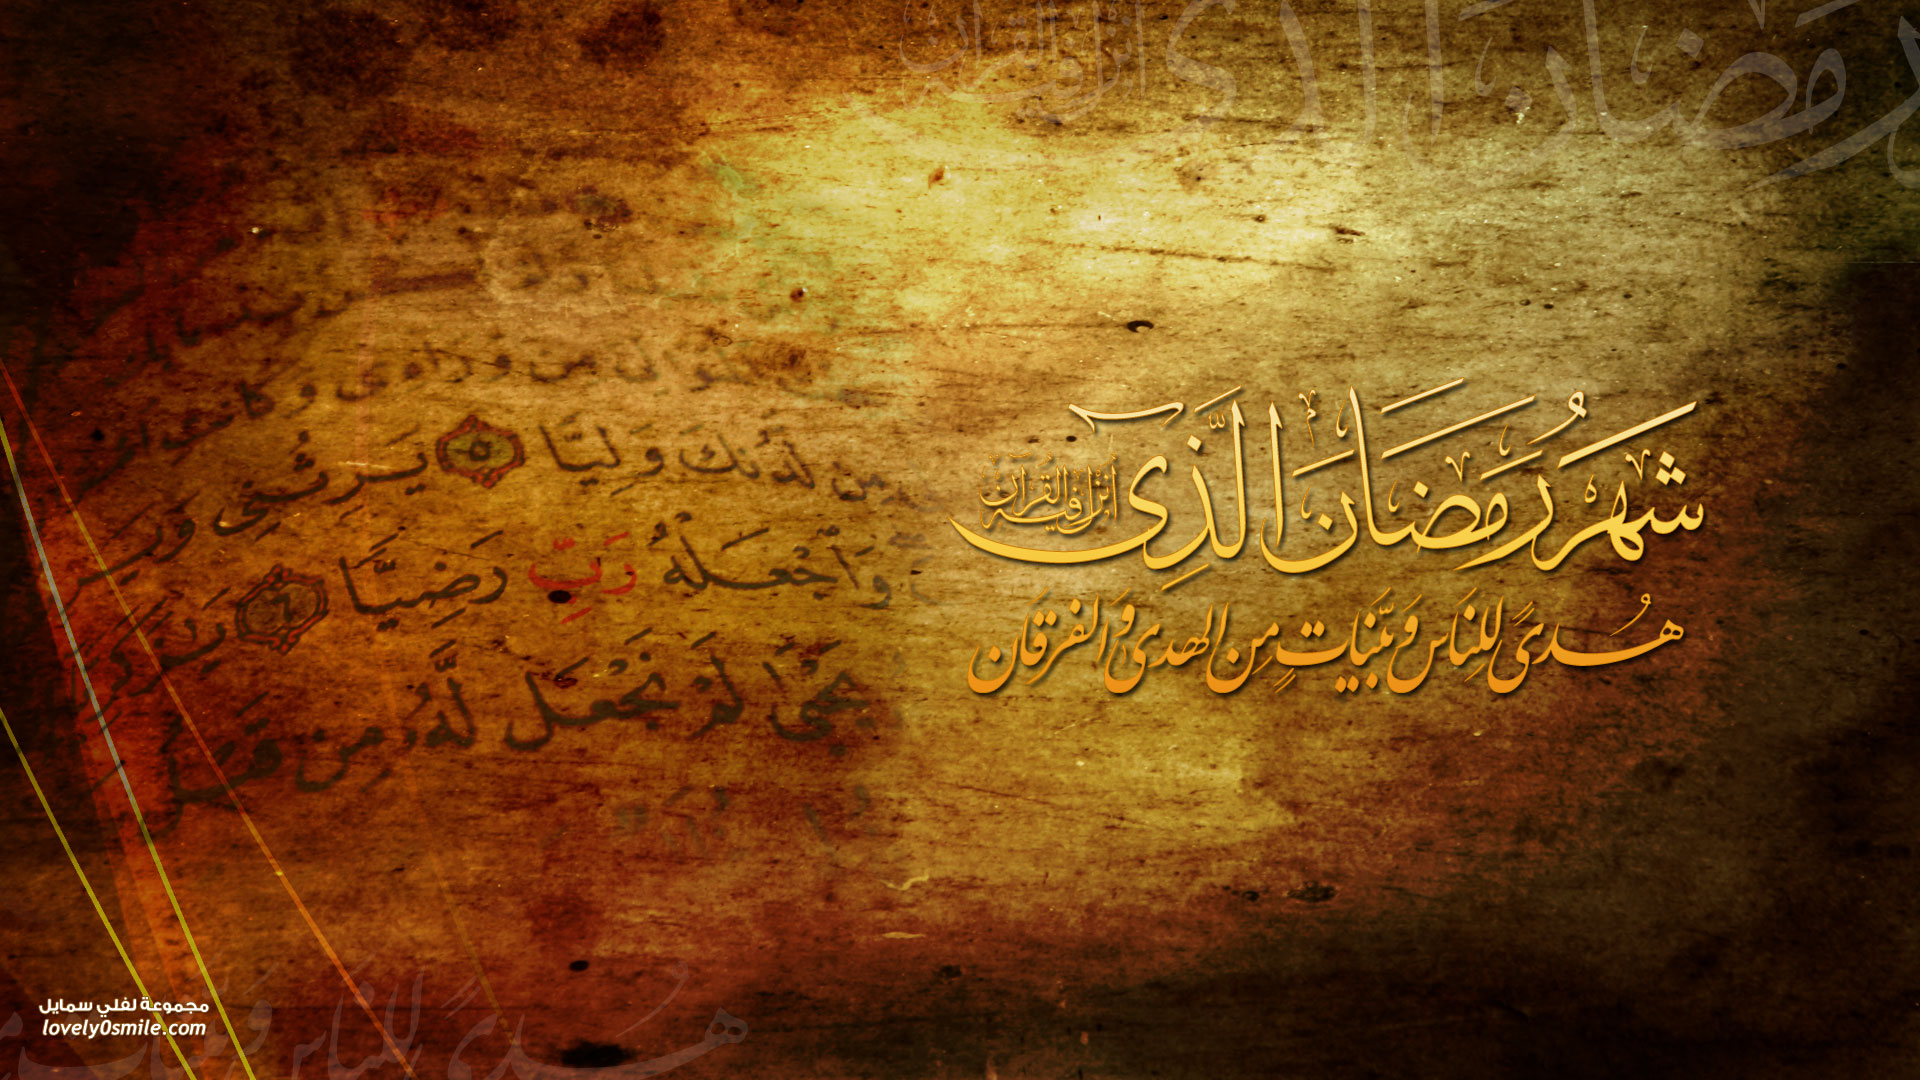 شَهْرُ رَمَضَانَ الَّذِىٓ أنزل فيه القرآن
هُدىً لِلنَاس وَبَيَّنَاتٍ مِن الهدى وَالفرقان
مِن لَّدُنكَ وَلِيًّا ٥ يَرِثُنِى وَيَرِ
وَٱجْعَلْهُ رَبِّ رَضِيًّا ٦ يَٰزَكَرِ
يَحْيَىٰ لَمْ نَجْعَل لَّهُۥ مِن قَبْلُ
مجموعة لفلي سمايل
lovely0smile.com